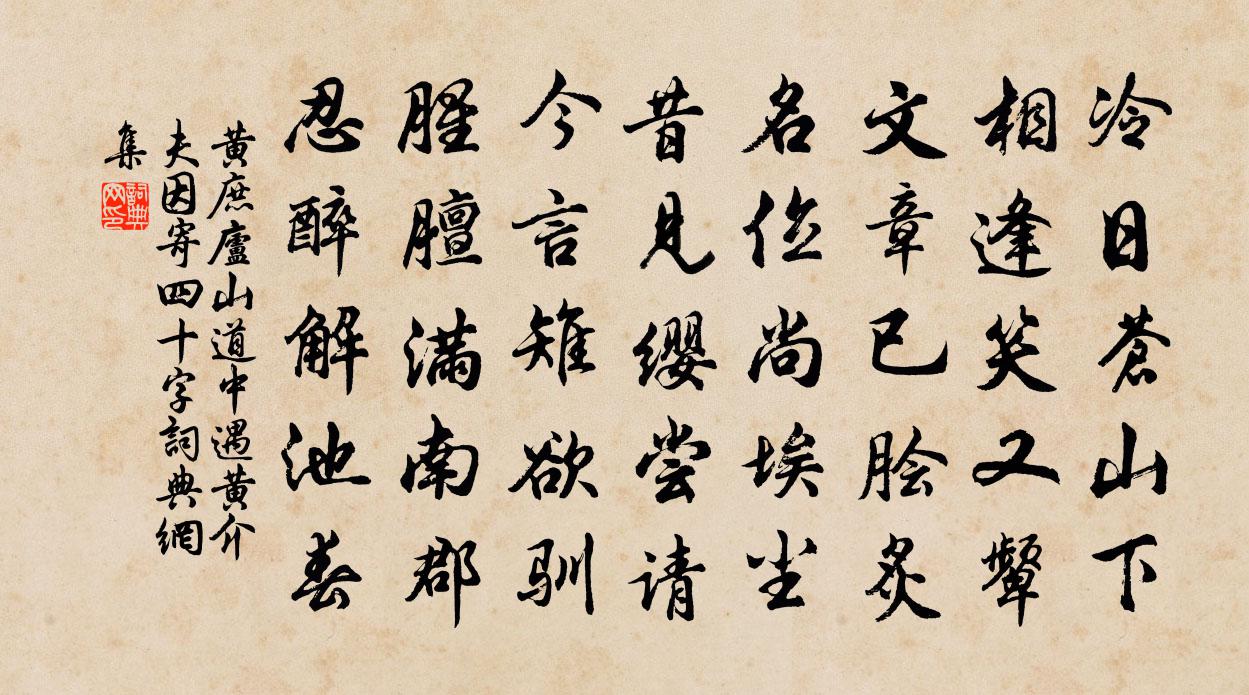 冷日苍山下
相逢笑又颦
文章已脍炙
名位尚埃尘
昔见缨尝请
今言雉欲驯
腥膻满南郡
忍醉解池春
黄庶廬山道中遇黄介
夫因寄四十字詞典網
集
詞典網印